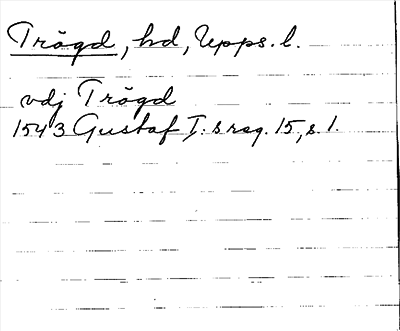 Trögd, hd, Upps. l.
vdj Trögd
1543 Gustaf I:s reg. 15, s 1.